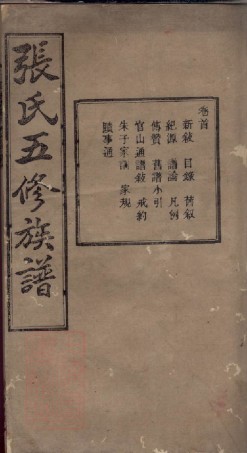 張氏五修族譜
卷首
新敘 目錄 舊敘
紀源 譜論 凡例
像贊 舊譜小引
官山通譜敘 戒約
朱子家訓 家規